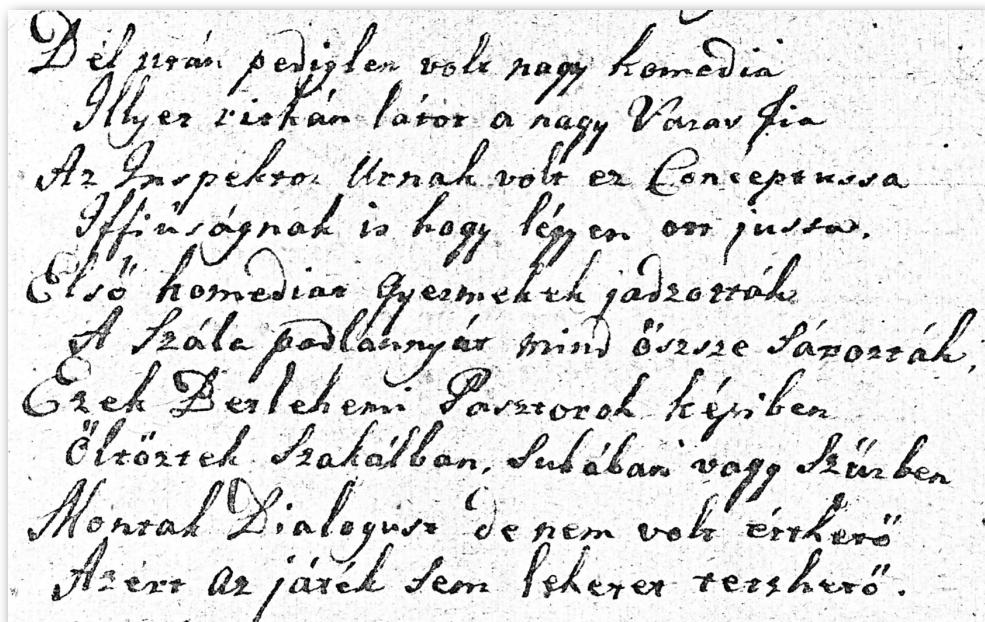 Dél után pediglen volt nagy komedia
Illyet ritkán látot a nagy Várav fia
Az Inspektor Urnak volt ez Conceptussa
Iffiúságnak is hogy légyen ott jussa.
Első komediát Gyermekek jadzották
A Szála padlannyát mind öszsze sározták,
Ezek Betlehemi Pasztorok képiben
Öltöztek Szakálban, subában vagy Szűrben
Montak Dialogust de nem volt érthető
Azért az játék sem lehetet tetzhető.